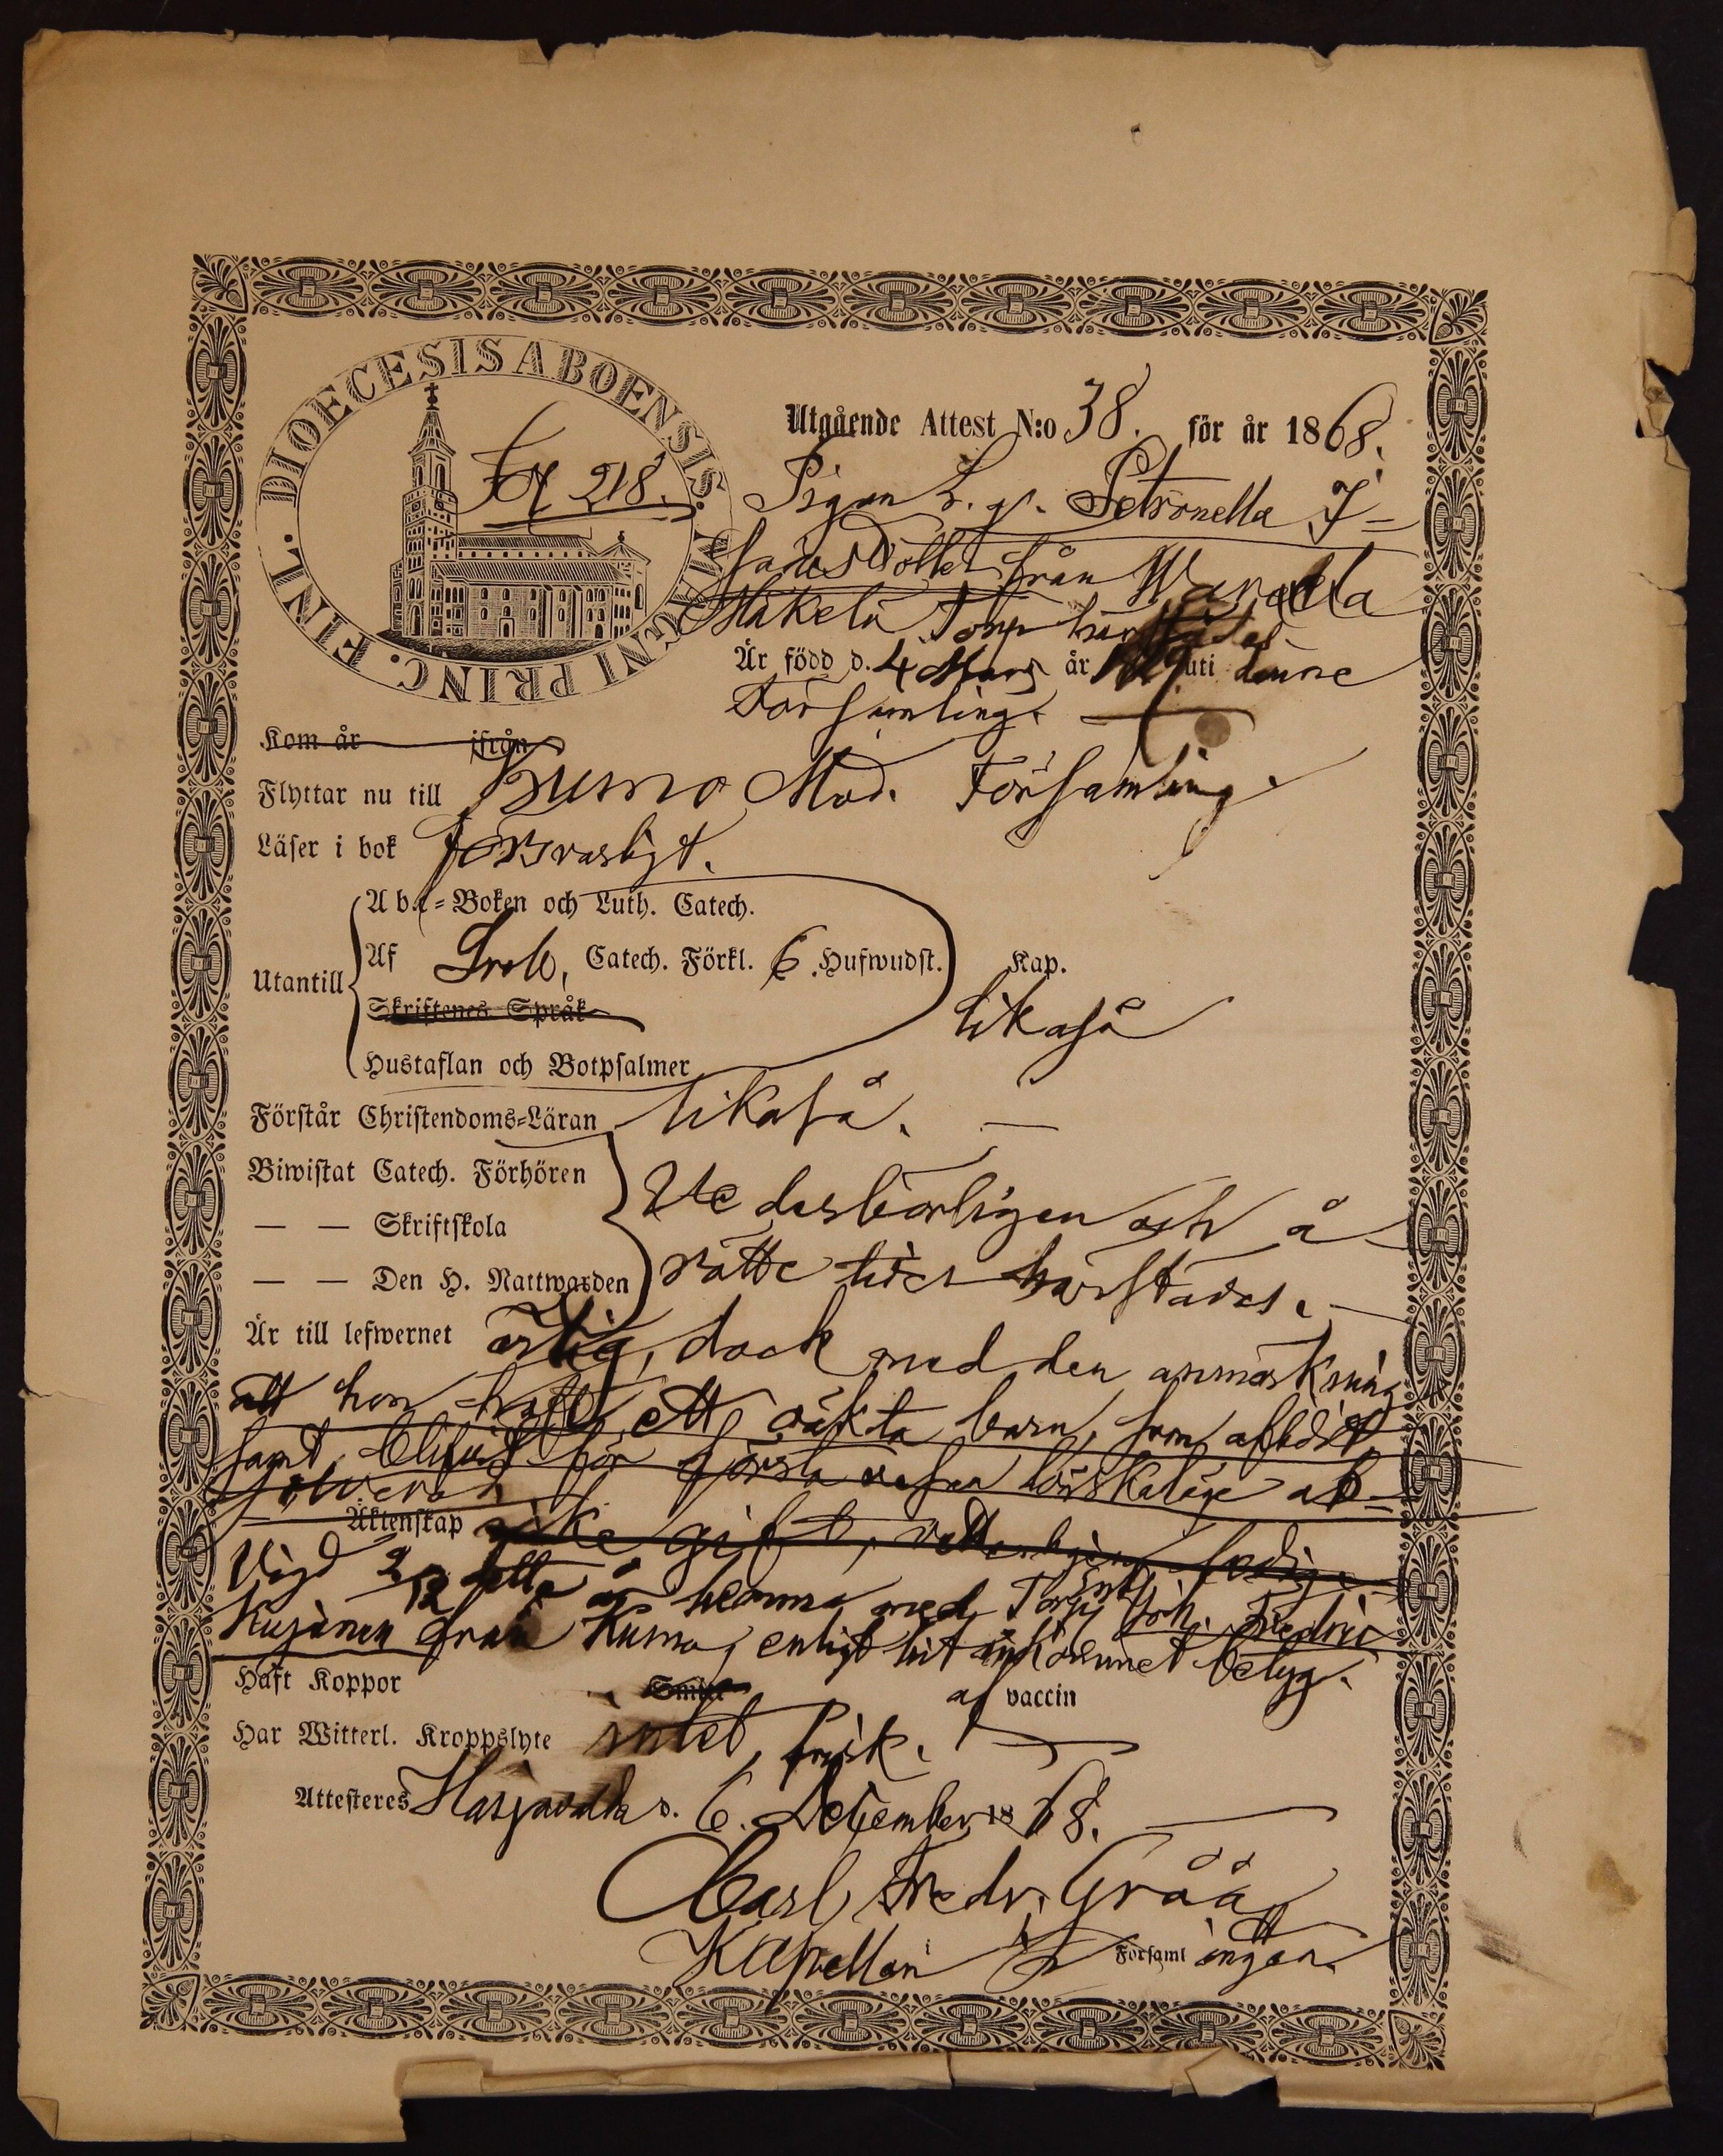 DIOECESIS ABOENSIS. MAGNI PRINC. FINL.
218.
Utgående Attest N:o 38. för år 1868.
Pigan Petronella I-
saksdotter från
Mäkelä Torp härstädes
Är född d. 4 Mars år uti denne
Församling.
Kom år ifrån
Flyttar nu till Kumo Mod. Församling.
Läser i bok försvarligt.
Utantill
A b c-Boken och Luth. Catech.
Af Sveb. Catech. Förkl. 6 Hufwudst. Kap.
Skriftenes Språk
likaså
Hustaflan och Botpsalmer
Förstår Christendoms-Läran likaså.
Biwistat Catech. Förhören
— — Skriftskola
— — Den H. Nattwarden
Vederbörligen och å
rätte tider härstädes.
Är till lefwernet ärlig, dock med den anmärkning
att hon haft ett oäkta barn, som aflidit,
samt blifvit för första resan lönskaläge ab-
solverad.
Äktenskap icke gift, ledig
Vigd 2/12 detta år hemma med Joh. Fredric
från Kumo, enligt hit ankommet betyg.
Haft Koppor af vaccin
Har Witterl. Kroppslyte intet, frisk.
Attesteres Harjavalta d. 6. December 1868.
Carl Fredr. Gråå
Kapellan i Församlingen.